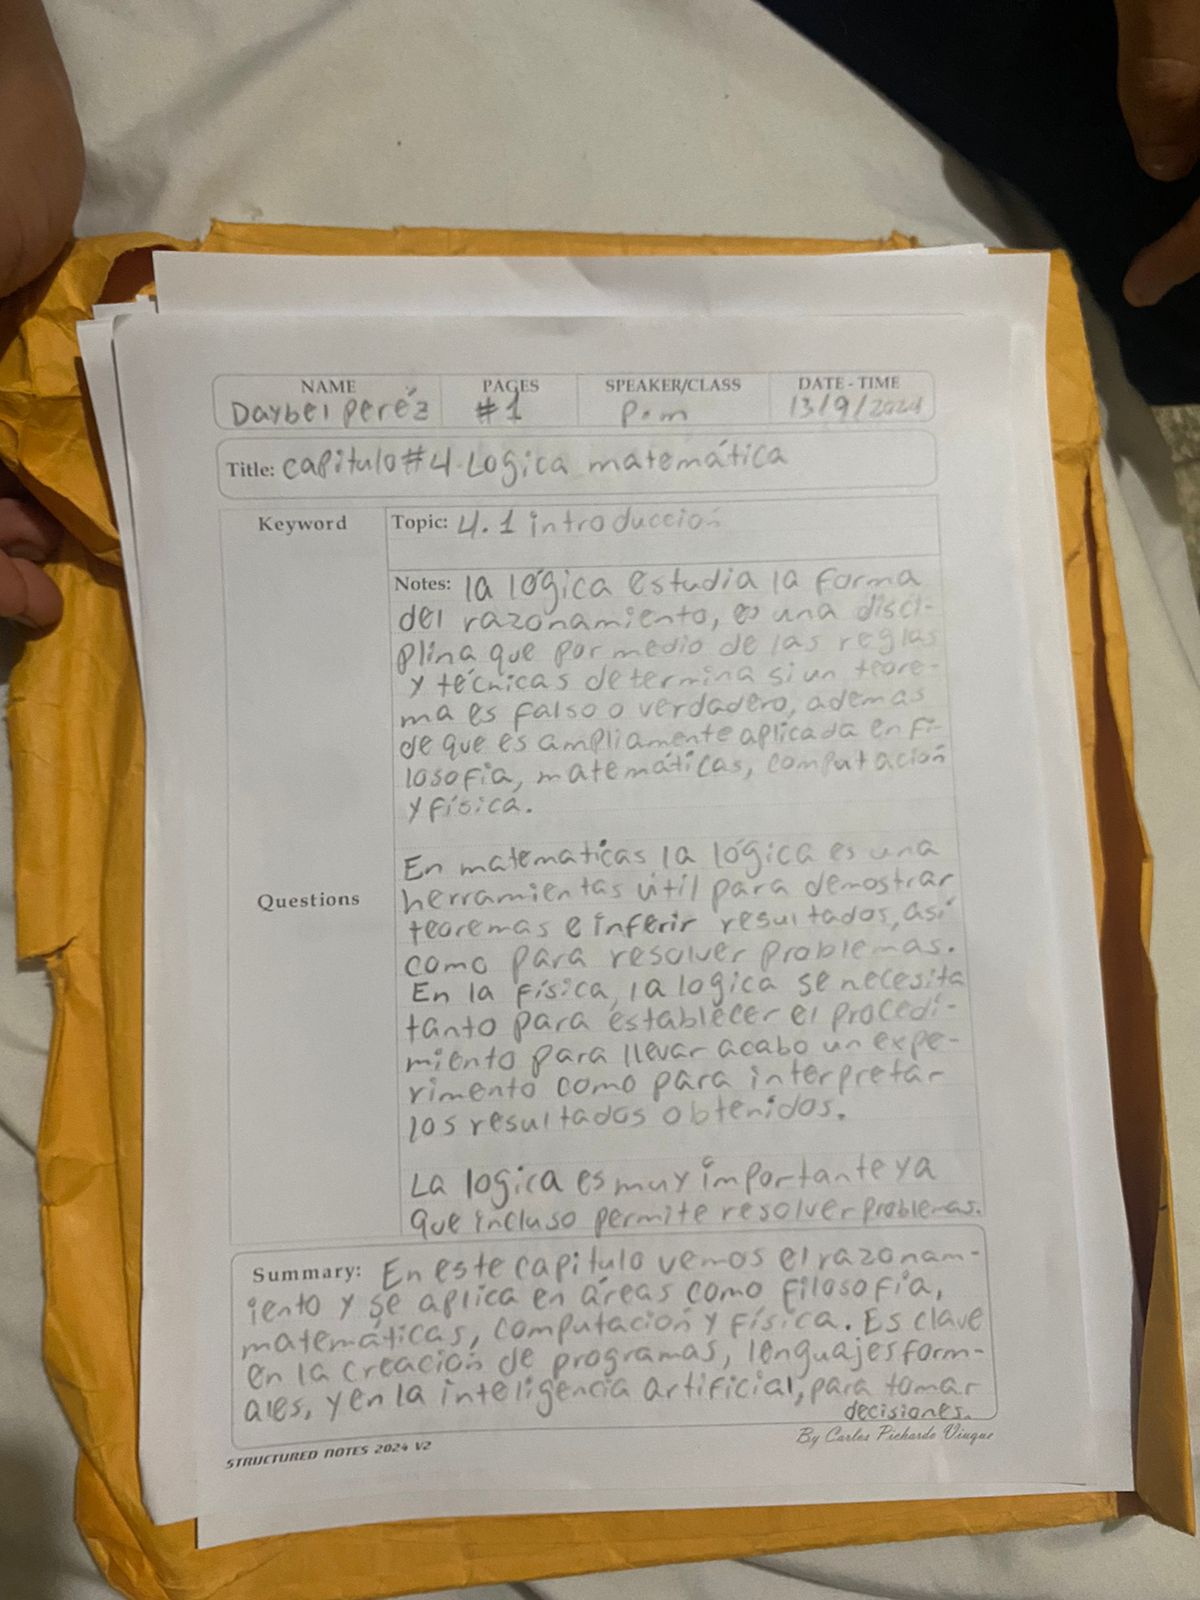 NAME PAGES SPEAKER/CLASS DATE - TIME
Daybel Peréz #1 P.m 13/9/2024
Title: Capitulo #4. Logica matemática
Keyword
Topic: 4.1 introducción
Notes: la lógica estudia la forma
del razonamiento, es una disci-
plina que por medio de las reglas
y técnicas determina si un teore-
ma es falso o verdadero, ademas
de que es ampliamente aplicada en fi-
losofía, matemáticas, computación
y física.
En matematicas la lógica es una
Questions
herramientas útil para demostrar
teoremas e inferir resultados, así
como para resolver problemas.
En la física, la logica se necesita
tanto para establecer el procedi-
miento para llevar acabo un expe-
rimento como para interpretar
los resultados obtenidos.
La logica es muy importante ya
que incluso permite resolver problemas.
Summary: En este capitulo vemos el razonam-
iento y se aplica en áreas como filosofía,
matemáticas, computación y física. Es clave
en la creación de programas, lenguajes form-
ales, y en la inteligencia artificial, para tomar
decisiones.
By Carlos Pichardo Viuque
STRUCTURED NOTES 2024 V2